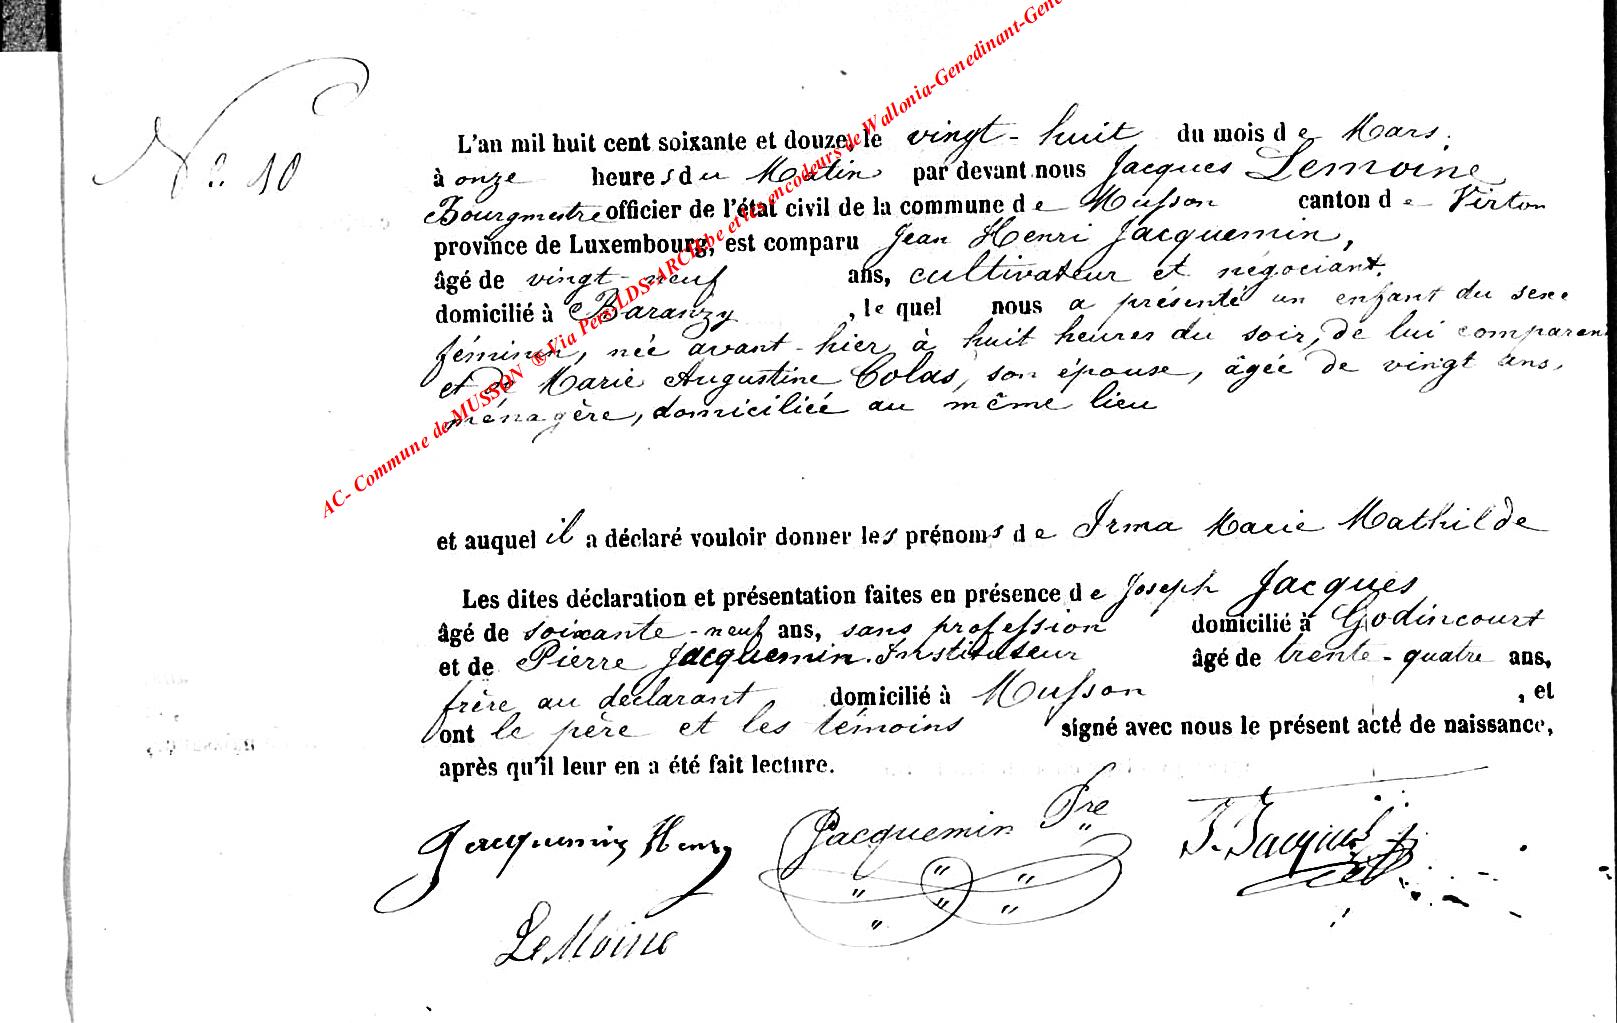 N.o 10
L'an mil huit cent soixante et douze, le vingt-huit du mois de Mars,
à onze heures du Matin par devant nous Jacques Lemoine
Bourgmestre officier de l'état civil de la commune de Musson canton de Virton
province de Luxembourg, est comparu Jean Henri Jacquemin,
âgé de vingt-neuf ans, cultivateur et négociant,
domicilié à Baranzy, lequel nous a présenté un enfant du sexe
féminin, née avant-hier à huit heures du soir, de lui comparent
et de Marie Augustine Colas, son épouse, âgée de vingt ans,
ménagère, domiciliée au même lieu
et auquel il a déclaré vouloir donner les prénoms de Irma Marie Mathilde
Les dites déclaration et présentation faites en présence de Joseph Jacques
âgé de soixante-neuf ans, sans profession domicilié à Godincourt
et de Pierre Jacquemin. Instituteur âgé de trente-quatre ans,
frère au déclarant domicilié à Musson, et
ont le père et les témoins signé avec nous le présent acte de naissance,
après qu'il leur en a été fait lecture.
Jacquemin Henry Jacquemin Pre J. Jacques
LeMoine
AC- Commune de MUSSON ® Via Pers LDS-ARCH.be et les encodeurs de Wallonia-Genedinant-Gene